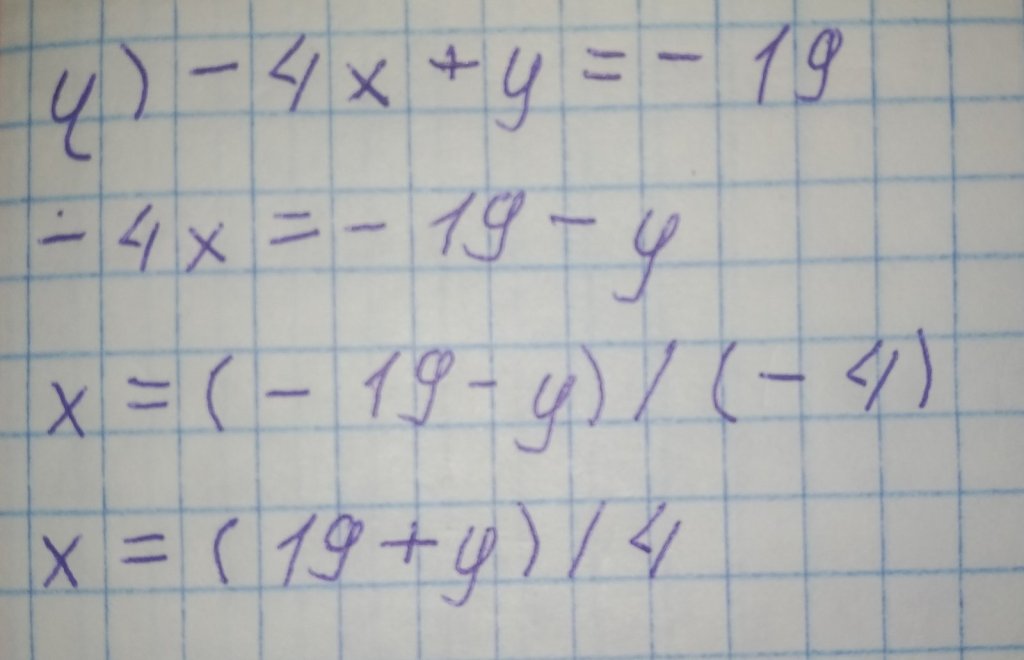 ч) - 4x + y = - 19
- 4x = - 19 - y
x = (- 19 - y) / (- 4)
x = (19 + y) / 4